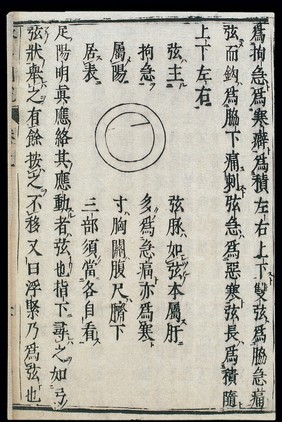 爲拘急爲寒癖爲積左右上下雙弦爲脇急痛
弦而鈎爲脇下痛刺弦急爲惡寒弦長爲積隨
上下左右
弦主
拘急
屬陽
居表
弦脉如弦本屬肝
多爲急痛亦爲寒
寸胸關腹尺臍下
三部須當各自看
足陽明真應絡其應動者弦也指下尋之如弓
弦狀舉之有餘按之不移又曰浮緊乃爲弦也